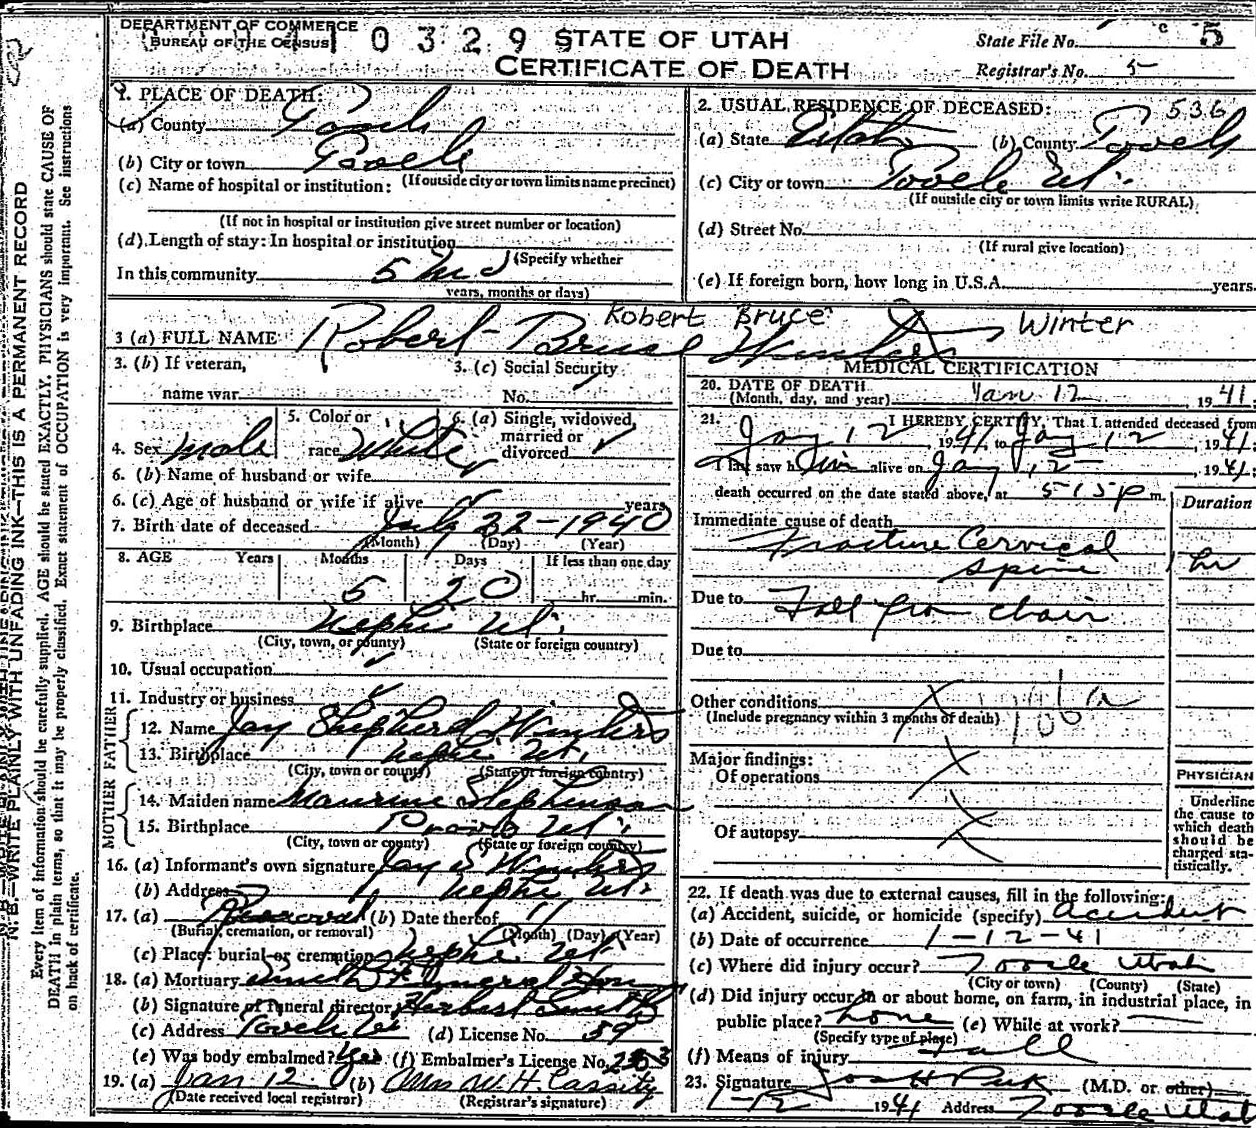 DEPARTMENT OF COMMERCE
BUREAU OF THE CENSUS
0 3 2 9 9
STATE OF UTAH
CERTIFICATE OF DEATH
State File No. 5
Registrar's No. 5
N. B.—WRITE PLAINLY WITH UNFADING INK—THIS IS A PERMANENT RECORD
Every item of information should be carefully supplied. AGE should be stated EXACTLY. PHYSICIANS should state CAUSE OF
DEATH in plain terms, so that it may be properly classified. Exact statement of OCCUPATION is very important. See instructions
on back of certificate.
1. PLACE OF DEATH:
(a) County Tooele
(b) City or town Tooele
(c) Name of hospital or institution: (If outside city or town limits name precinct)
(If not in hospital or institution give street number or location)
(d) Length of stay: In hospital or institution
(Specify whether
In this community 5
years, months or days)
2. USUAL RESIDENCE OF DECEASED: 536
(a) State Utah (b) County Tooele
(c) City or town Tooele Ut.
(If outside city or town limits write RURAL)
(d) Street No.
(If rural give location)
(e) If foreign born, how long in U.S.A. years.
Robert Bruce Winter
3 (a) FULL NAME Robert Bruce Winters
3. (b) If veteran, 3. (c) Social Security
name war No.
4. Sex Male 5. Color or race White 6. (a) Single, widowed, married or divorced
6. (b) Name of husband or wife
6. (c) Age of husband or wife if alive years
7. Birth date of deceased July 22-1940
(Month) (Day) (Year)
8. AGE Years Months Days If less than one day
5 20 hr. min.
9. Birthplace Nephi Ut.
(City, town, or county) (State or foreign country)
10. Usual occupation
11. Industry or business
FATHER
12. Name Jay Shepherd Winters
13. Birthplace Nephi Ut.
(City, town or county) (State or foreign country)
MOTHER
14. Maiden name Maurine Stephenson
15. Birthplace Provo Ut.
(City, town or county) (State or foreign country)
16. (a) Informant's own signature Jay S Winters
(b) Address Nephi Ut.
17. (a) Removal (b) Date thereof 11
(Burial, cremation, or removal) (Month) (Day) (Year)
(c) Place: burial or cremation Nephi Ut.
18. (a) Mortuary Smith Funeral Home
(b) Signature of funeral director Herbert Smith
(c) Address Tooele Ut (d) License No. 59
(e) Was body embalmed? Yes (f) Embalmer's License No.
19. (a) Jan 12. (b) Mrs W. H. Cassity
(Date received local registrar) (Registrar's signature)
MEDICAL CERTIFICATION
20. DATE OF DEATH
(Month, day, and year) Jan 12 1941:
21. I HEREBY CERTIFY, That I attended deceased from
Jan 12, 1941 to Jan 12, 1941.
I last saw him alive on Jan 12 1941:
death occurred on the date stated above, at 515 p m.
Immediate cause of death Duration
Fracture Cervical
spine 1 hr
Due to Fall from chair
Due to
Other conditions 186a
(Include pregnancy within 3 months of death)
Major findings:
Of operations
Of autopsy
PHYSICIAN
Underline
the cause to
which death
should be
charged sta-
tistically.
22. If death was due to external causes, fill in the following:
(a) Accident, suicide, or homicide (specify) accident
(b) Date of occurrence 1-12-41
(c) Where did injury occur? Tooele Utah
(City or town) (County) (State)
(d) Did injury occur in or about home, on farm, in industrial place, in
public place? home (e) While at work?
(Specify type of place)
(f) Means of injury Fall
23. Signature Jos H Peck (M.D. or other)
1-12 1941 Address Tooele Utah